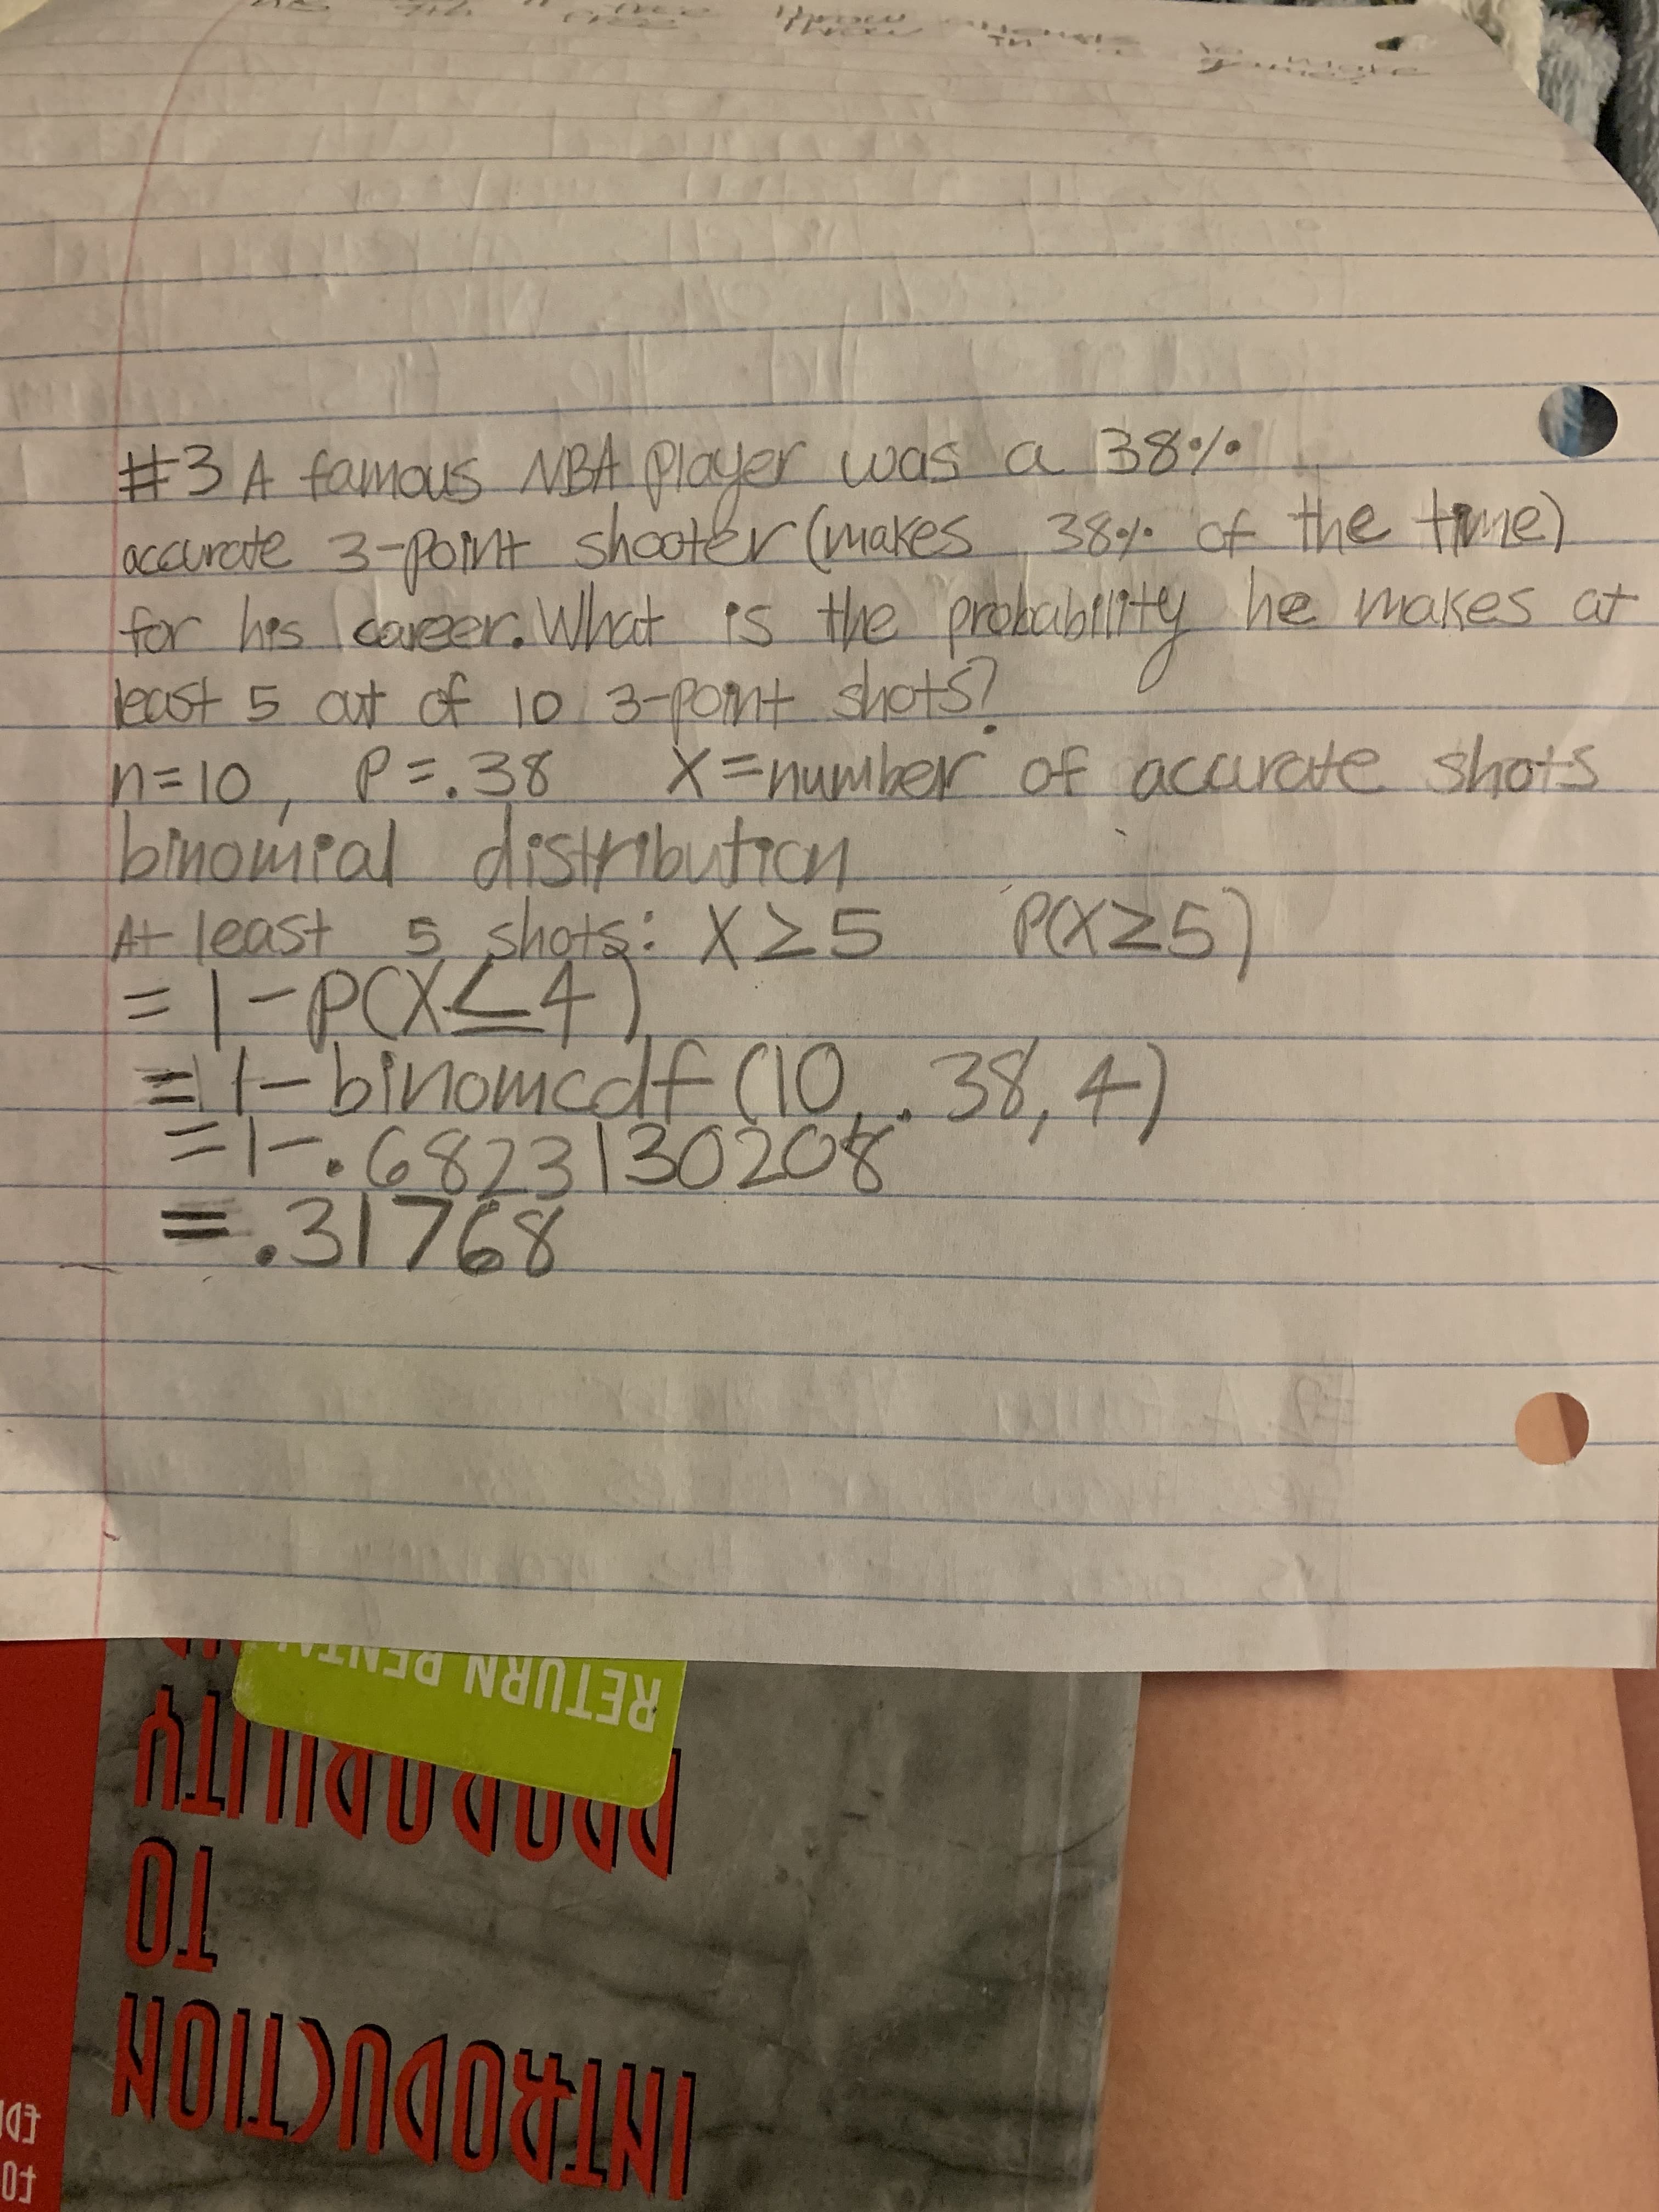 throw
#3 A famous NBA player was a 38%
accurate 3-point shooter (makes 38% of the time)
for his career. What is the probability he makes at
least 5 out of 10 3-point shots?
n=10, P=.38 X=number of accurate shots
binomial distribution
At least 5 shots: X≥5 P(X≥5)
=1-P(X≤4)
=1-binomcdf(10,.38,4)
=1-.6823130208
=.31768
RETURN RENTA
PROBABILITY
TO
INTRODUCTION